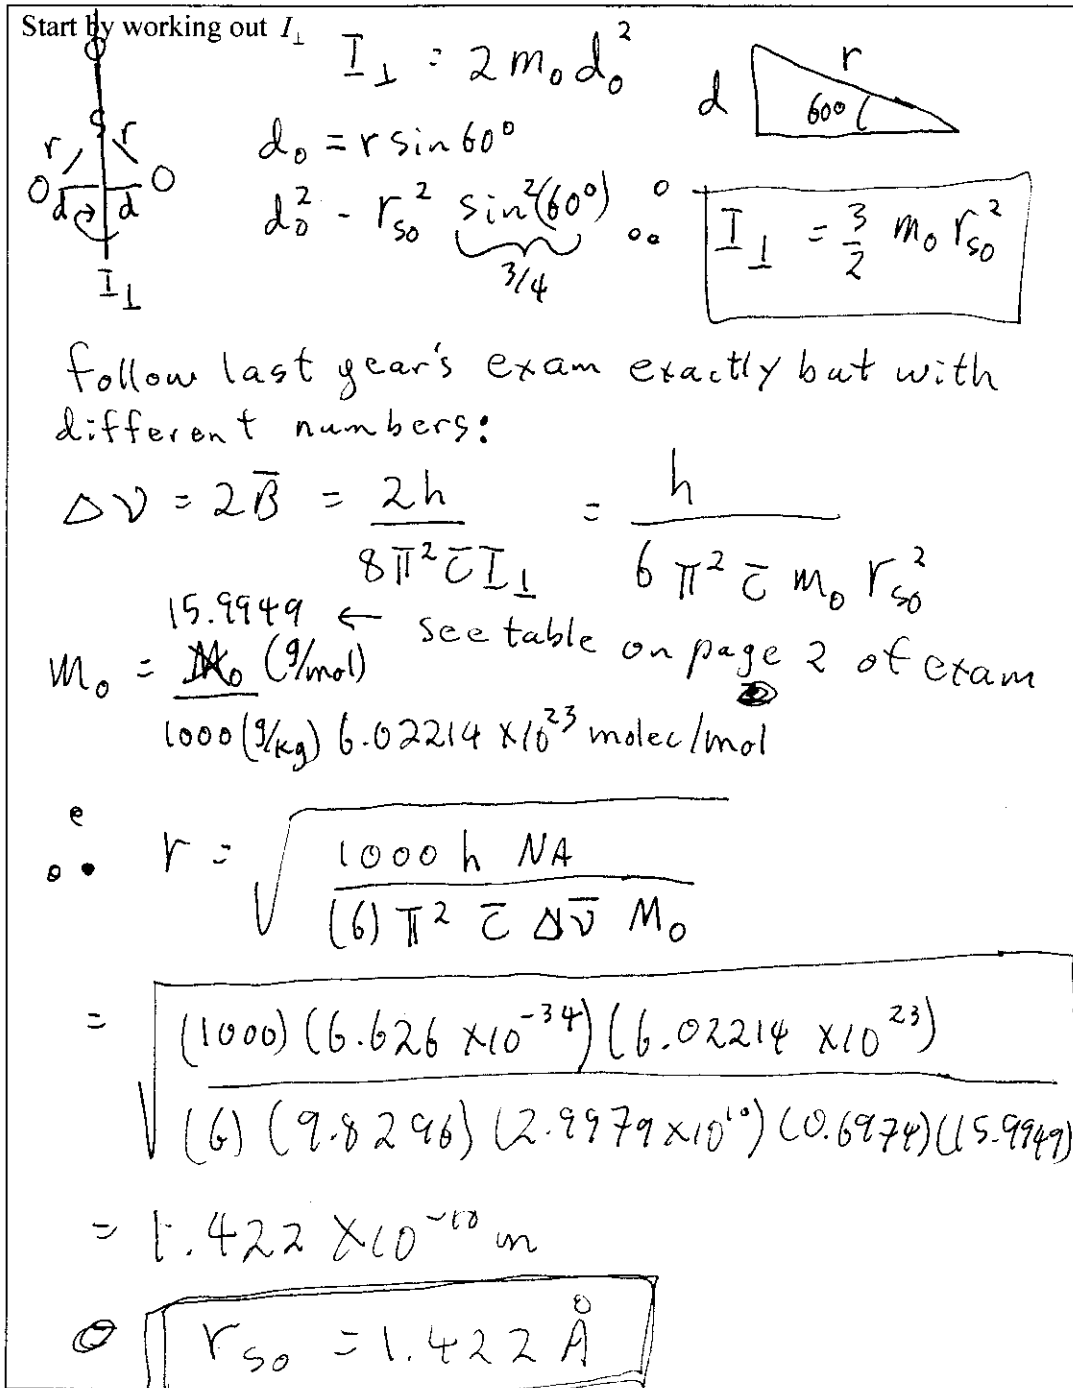 Start by working out I⊥
I⊥ = 2 m₀ d₀²
O
S
r r
O O
d d
I⊥
d r 60°
d₀ = r sin 60°
d₀² = r_SO² sin²(60°)
3/4
∴ I⊥ = 3/2 m₀ r_SO²
follow last year's exam exactly but with
different numbers:
Δν = 2B̄ = 2h / 8π² c̄ I⊥ = h / 6 π² c̄ m₀ r_SO²
15.9949 ← see table on page 2 of exam
m₀ = M₀ (g/mol) / 1000 (g/kg) 6.02214 ×10²³ molec/mol
∴ r = √ 1000 h NA / (6) π² c̄ Δν̄ M₀
= √ (1000) (6.626 ×10⁻³⁴) (6.02214 ×10²³) / (6) (9.8296) (2.9979×10¹⁰) (0.6974) (15.9949)
= 1.422 ×10⁻¹⁰ m
r_SO = 1.422 Å